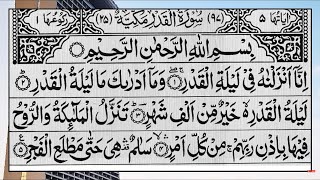 اٰیاتها ۵ (۹۷) سُوْرَةُ الْقَدْرِ مَكِّيَّةٌ (۲۵) رکوعها ۱
بِسْمِ اللّٰهِ الرَّحْمٰنِ الرَّحِیْمِ
اِنَّاۤ اَنْزَلْنٰهُ فِیْ لَیْلَةِ الْقَدْرِ ۝۱ وَ مَاۤ اَدْرٰىكَ مَا لَیْلَةُ الْقَدْرِ ۝۲
لَیْلَةُ الْقَدْرِ ۙ۬ خَیْرٌ مِّنْ اَلْفِ شَهْرٍ ۝۳ تَنَزَّلُ الْمَلٰٓىِٕكَةُ وَ الرُّوْحُ
فِیْهَا بِاِذْنِ رَبِّهِمْ ۚ مِنْ كُلِّ اَمْرٍ ۝۴ سَلٰمٌ ۛ۫ هِیَ حَتّٰى مَطْلَعِ الْفَجْرِ ۝۵